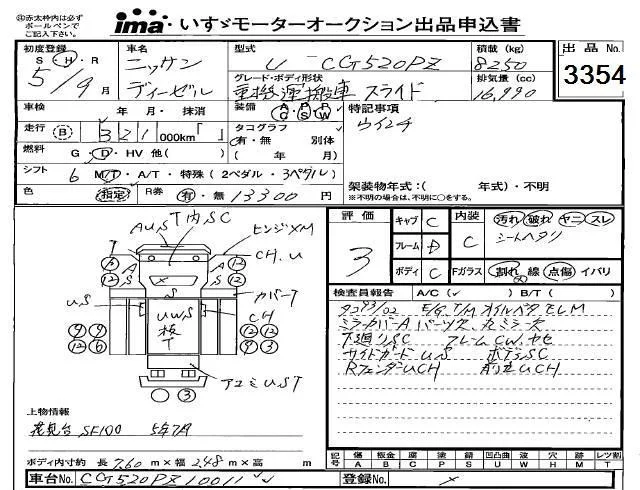 ima いすゞモーターオークション出品申込書
㊟赤太枠内は必ず
ボールペンで
ご記入下さい。
初度登録
S・H・R
5/9月
車名
ニッサン
ディーゼル
型式
U-CG520PZ
グレード・ボディ形状
重機運搬車 スライド
積載 (kg)
8250
排気量 (cc)
16,990
出品No.
3354
車検
年 月・抹消
装備
A・P・P
C・S・W
特記事項
ウインチ
走行 (B) 321 000km「 」
タコグラフ
有・無 別体
( 年 月)
燃料
G・D・HV 他( )
シフト 6 M/T・A/T・特殊 (2ペダル・3ペダル)
架装物年式:( 年式)・不明
※不明な場合のみ、不明に○をする。
色 (指定) R券 有・無 13300 円
評価
3
キャブ C
フレーム D
ボディ C
内装 C
Fガラス
汚れ・破れ・ヤニ・スレ
シートヘタリ
割れ・線・点傷・イバリ
検査員報告 A/C( ✓ ) B/T( )
タコ93/02 E/G,T/M オイルベタモレM
ミラーカバーA パーツ欠,左ミラー欠
下廻りSC フレームCW,ヤセ
サイドガードUS ボデーSC
RフェンダーUCH 前左UCH
AUS
T内SC
ヒンジXM
T
CH.U
A
S
US
カバーT
UWS
板
T
CH
アユミUST
上物情報
花見台 SF100 5年7月
ボディ内寸約 長 7.60 m×幅 2.48 m×高 m
記号
傷 A
板金 B
腐 C
塗 P
擦 S
凹凸曲 U
波 W
穴 H
欠 M
痕 X
レツ割 T
車台No. CG520PZ 10011
登録No.